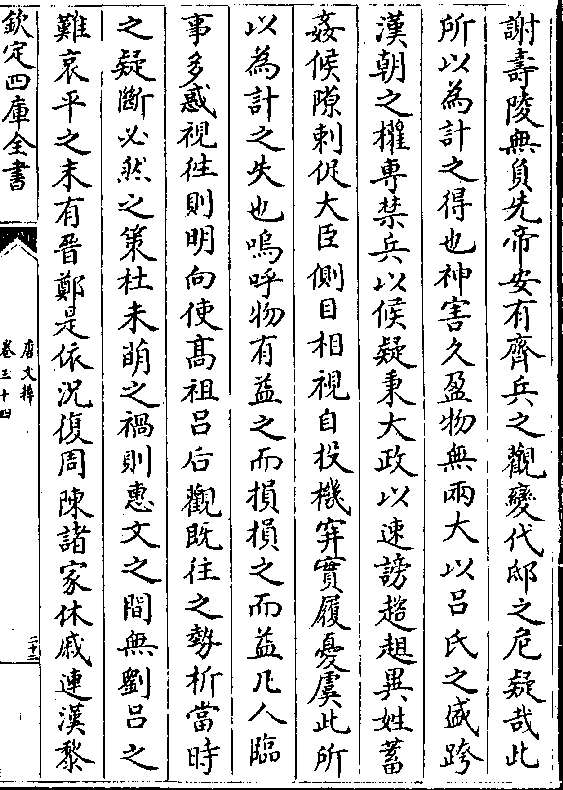 謝壽陵無負先帝安有齊兵之觀變代邸之危疑哉此
所以為計之得也神害久盈物無兩大以吕氏之盛跨
漢朝之權專禁兵以候疑秉大政以速謗趦趄異姓蓄
姦候隙刺促大臣側目相視自投機穽實履憂虞此所
以為計之失也嗚呼物有益之而損損之而益凡人臨
事多惑視徃則明向使髙祖吕后觀既往之勢析當時
之疑斷必然之策杜未萌之禍則惠文之間無劉吕之
難哀平之末有晋鄭是依況復周陳諸家休戚連漢黎
欽定四庫全書
唐文粹
卷三十四
二十三